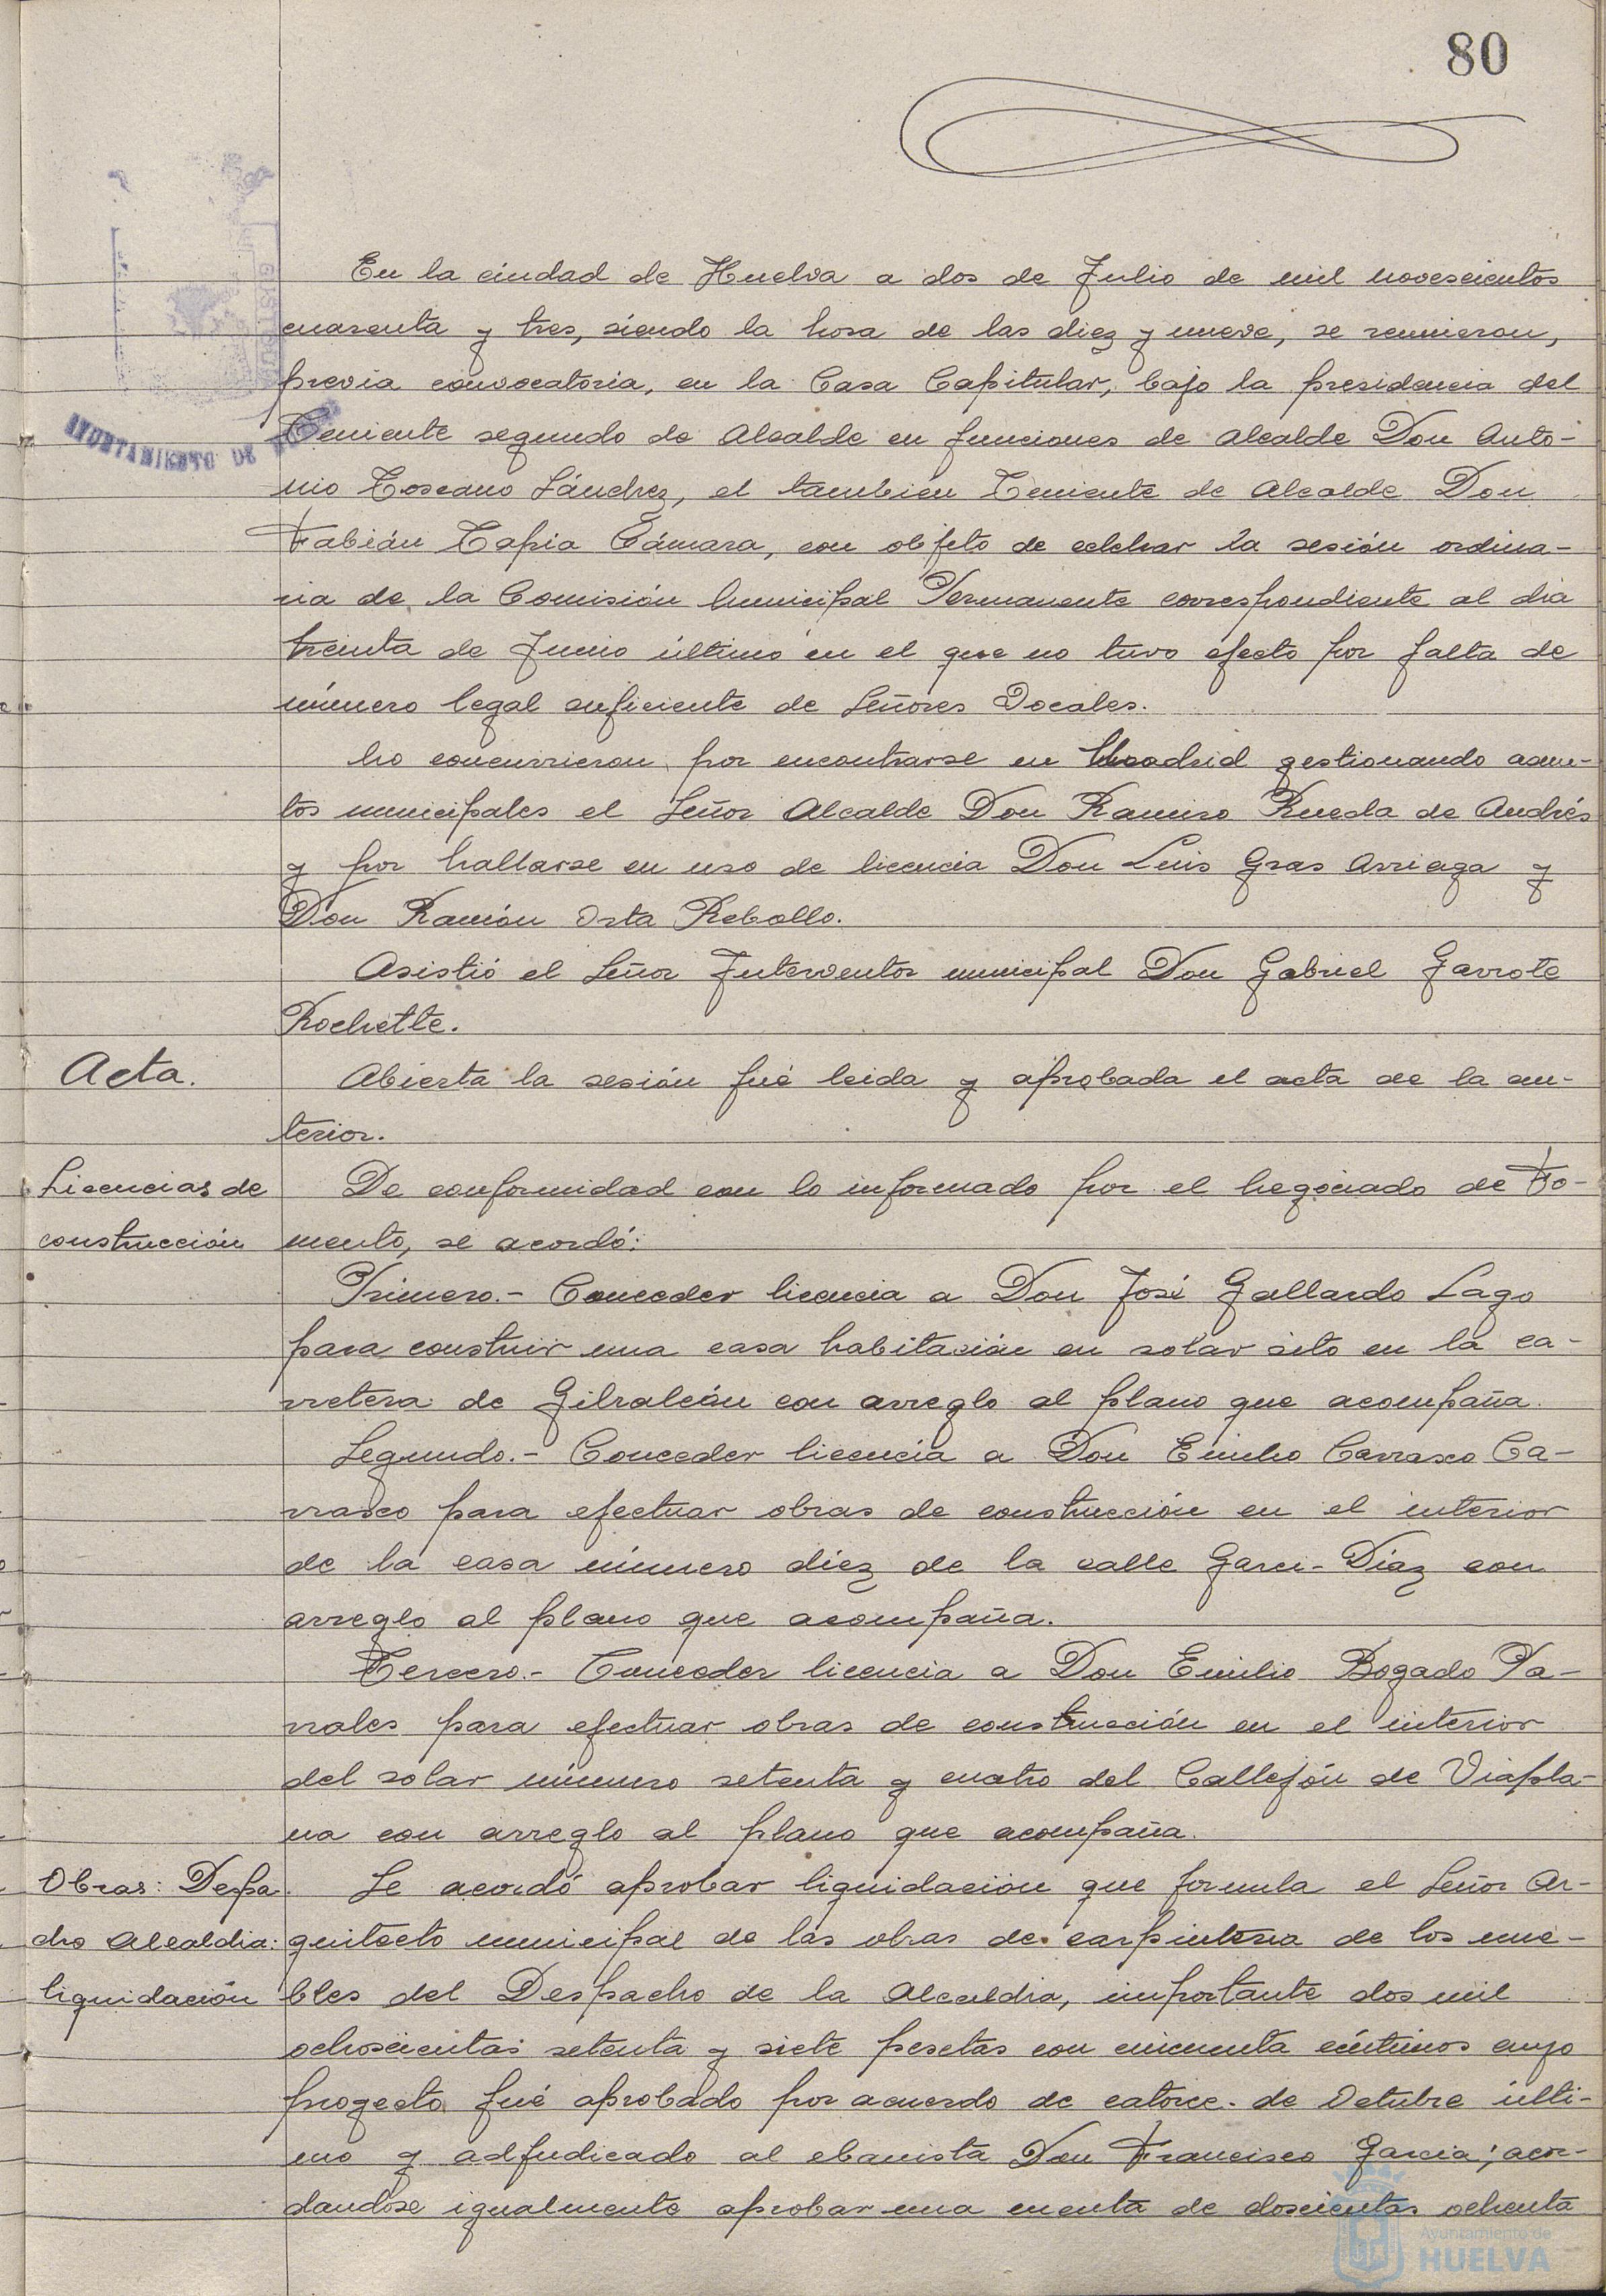 80
En la ciudad de Huelva a dos de Julio de mil novescientos
cuarenta y tres, siendo la hora de las diez y nueve, se reunieron,
previa convocatoria, en la Casa Capitular, bajo la presidencia del
Teniente segundo de Alcalde en funciones de alcalde Don Anto-
AYUNTAMIENTO DE
nio Toscano Sánchez, el tambien Teniente de Alcalde Don
Fabián Tapia Cámara, con objeto de celebrar la sesión ordina-
ria de la Comisión Municipal Permanente correspondiente al dia
treinta de Junio último en el que no tuvo efecto por falta de
número legal suficiente de Señores Vocales.
No concurrieron por encontrarse en Madrid gestionando asun-
tos municipales el Señor Alcalde Don Ramiro Rueda de Andrés
y por hallarse en uso de licencia Don Luis Gras Arriaga y
Don Ramón Orta Rebollo.
Asistió el Señor Interventor municipal Don Gabriel Garrote
Rochette.
Acta. Abierta la sesión fué leida y aprobada el acta de la an-
terior.
Licencias de De conformidad con lo informado por el Negociado de Fo-
construcción mento, se acordó:
Primero.- Conceder licencia a Don José Gallardo Lago
para construir una casa habitación en solar sito en la ca-
rretera de Gibraleón con arreglo al plano que acompaña.
Segundo.- Conceder licencia a Don Emilio Carrasco Ca-
rrasco para efectuar obras de construcción en el interior
de la casa número diez de la calle Garci-Díaz con
arreglo al plano que acompaña.
Tercero.- Conceder licencia a Don Emilio Bogado Pa-
rrales para efectuar obras de construcción en el interior
del solar número setenta y cuatro del Callejón de Viapla-
na con arreglo al plano que acompaña.
Obras: Despa Se acordó aprobar liquidación que formula el Señor Ar-
cho Alcaldia: quitecto municipal de las obras de carpinteria de los mue-
liquidación bles del Despacho de la Alcaldia, importante dos mil
ochoscientas setenta y siete pesetas con cincuenta céntimos cuyo
proyecto fué aprobado por acuerdo de catorce de Octubre últi-
mo y adjudicado al ebanista Don Francisco Garcia; acor-
dandose igualmente aprobar una cuenta de doscientas ochenta
Ayuntamiento de
HUELVA